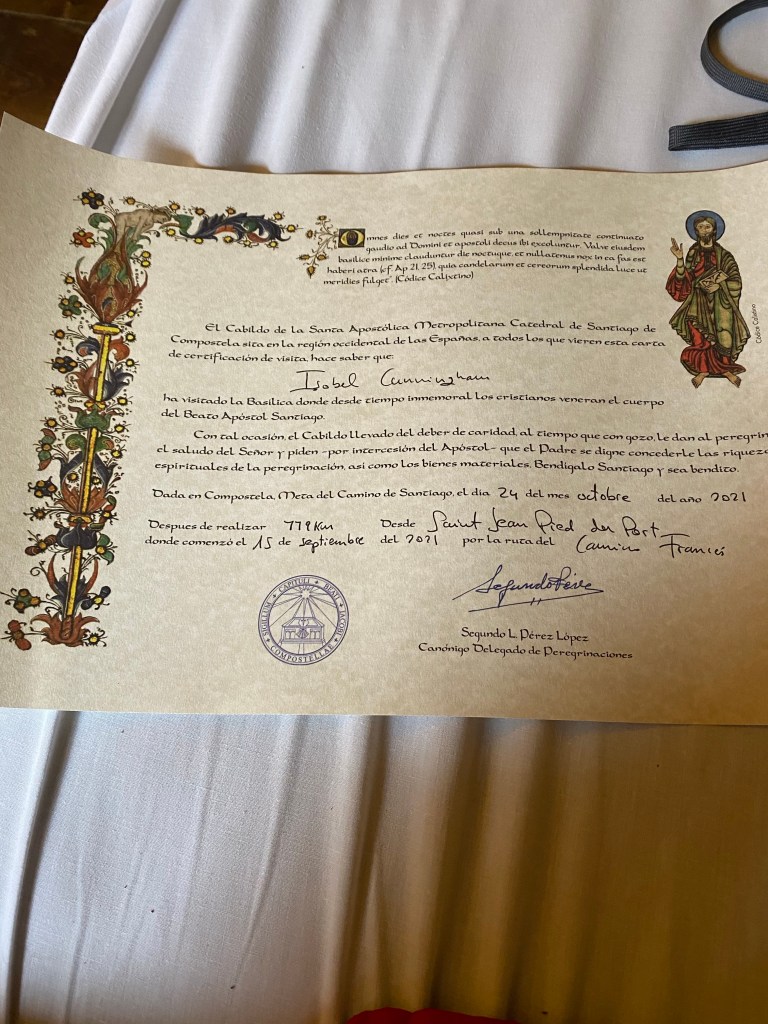 Omnes dies et noctes quasi sub una sollempnitate continuato
gaudio ad Domini et apostoli decus ibi excoluntur. Valve eiusdem
basilice minime clauduntur die noctuque, et nullatenus nox in ea fas est
haberi atra (cf. Ap 21, 25), quia candelarum et cereorum splendida luce ut
meridies fulget". (Códice Calixtino)
Códice Calixtino
El Cabildo de la Santa Apostólica Metropolitana Catedral de Santiago de
Compostela sita en la región occidental de las Españas, a todos los que vieren esta carta
de certificación de visita, hace saber que:
Isobel Cunningham
ha visitado la Basílica donde desde tiempo inmemorial los cristianos veneran el cuerpo
del Beato Apóstol Santiago.
Con tal ocasión, el Cabildo llevado del deber de caridad, al tiempo que con gozo, le dan al peregrin
el saludo del Señor y piden -por intercesión del Apóstol- que el Padre se digne concederle las riqueza
espirituales de la peregrinación, así como los bienes materiales. Bendígalo Santiago y sea bendito.
Dada en Compostela, Meta del Camino de Santiago, el día 24 del mes octobre del año 2021
Despues de realizar 779 Km Desde Saint Jean Pied du Port
donde comenzó el 15 de septiembre del 2021 por la ruta del Camino Francés
SIGILLUM CAPITULI BEATI JACOBI COMPOSTELLAE
Segundo Pérez
Segundo L. Pérez López
Canónigo Delegado de Peregrinaciones